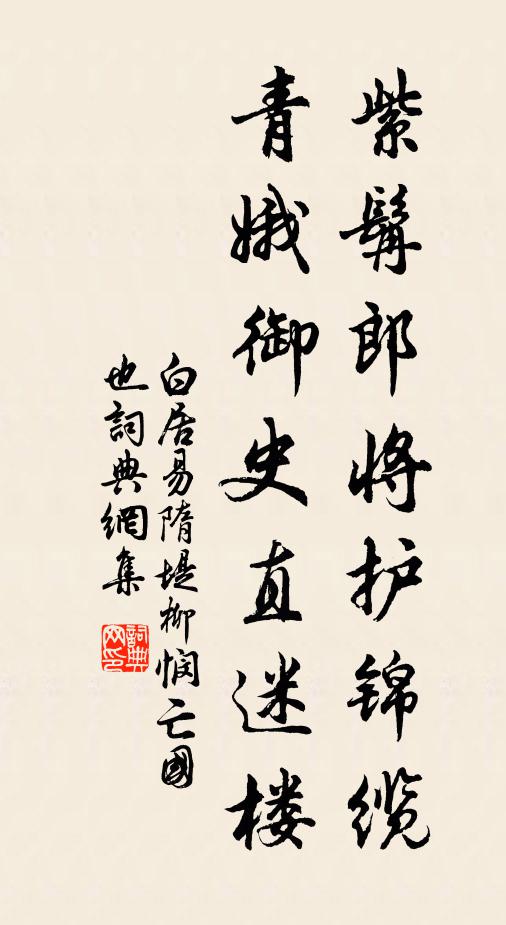 紫髯郎将护锦缆
青娥御史直迷楼
白居易隋堤柳悯亡国
也詞典網集
詞典
网印